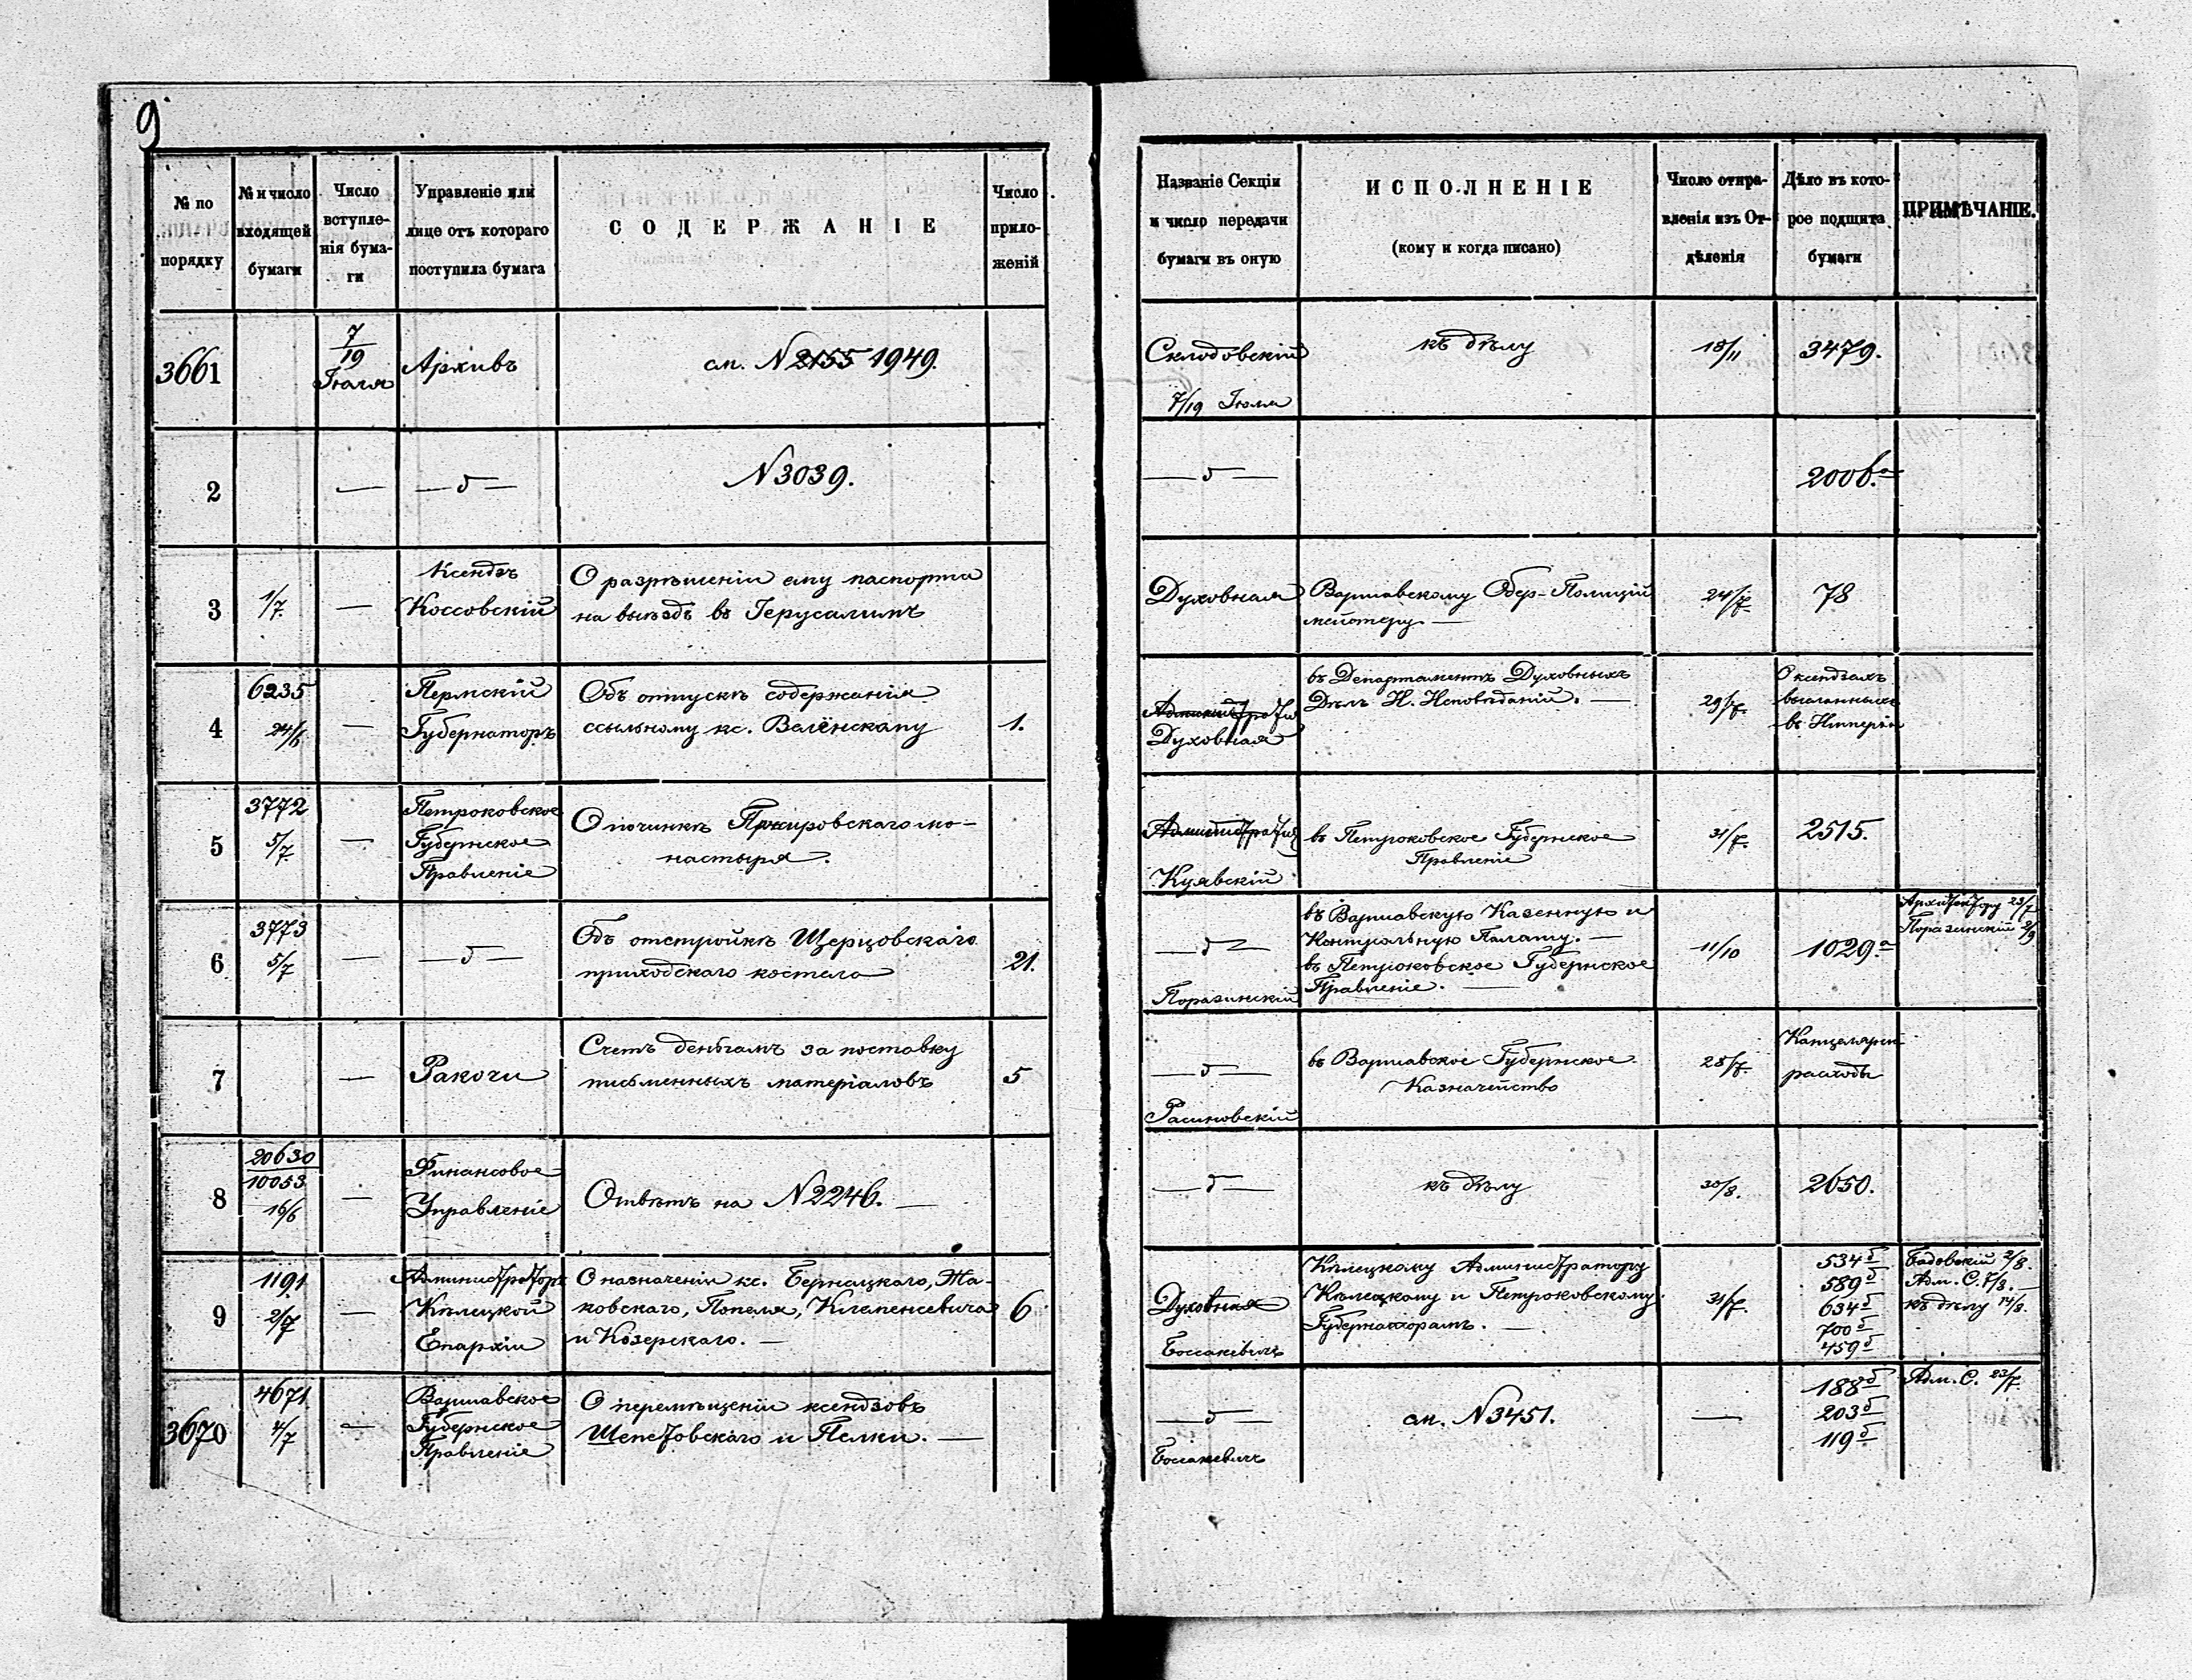 9
№ по
порядку
№ и число
входящей
бумаги
Число
вступле-
нія бума-
ги
Управленіе или
лице отъ котораго
поступила бумага
СОДЕРЖАНІЕ
Число
прило-
женій
Названіе Секціи
и число передачи
бумаги въ оную
ИСПОЛНЕНІЕ
(кому и когда писано)
Число отпра-
вленія изъ От-
дѣленія
Дѣло въ кото-
рое подшита
бумаги
ПРИМѢЧАНІЕ.
3661
7/19
Іюля
Архивъ
см. N 2155 1949.
Склодовскій
7/19 Іюля
къ дѣлу
18/11
3479.
2
— — δ —
N 3039.
— δ —
200 б.а
3
1/7.
—
Ксендзъ
Коссовскій
О разрѣшеніи ему паспорта
на выѣздъ въ Іерусалимъ
Духовная
Варшавскому Обер-Полицій
мейстеру. —
24/7.
78
4
6235
24/6
—
Пермскій
Губернаторъ
Объ отпускѣ содержанія
ссыльному кс. Валёнскому
1.
Духовная
въ Департаментъ Духовныхъ
Дѣлъ И. Исповѣданій. —
29/7.
О ксендзахъ
высланныхъ
въ Имперію
5
3772
5/7
—
Петроковское
Губернское
Правленіе
О починкѣ
монастыря.
Куявскій
въ Петроковское Губернское
Правленіе
31/7.
2515.
6
3773
5/7
—
— δ —
Объ отстройкѣ Щерцовскаго
приходскаго костела
21.
— δ —
Поразинскій
въ Варшавскую Казенную и
Контрольную Палату. —
въ Петроковское Губернское
Правленіе. —
11/10
1029.а
Архитектору 23/7
Поразинскій 2/9
7
—
Ракочи
Счетъ деньгамъ за поставку
письменныхъ матеріаловъ
5
— δ —
Расиновскій
въ Варшавское Губернское
Казначейство
28/7.
Канцелярск
расходы
8
20630
10053
16/6
—
Финансовое
Управленіе
Отвѣтъ на N 2246. —
— δ —
къ дѣлу
30/8.
2650.
9
1191
2/7
—
Администраторъ
Кѣлецкой
Епархіи
О назначеніи кс. Бернацкаго, Ма-
ковскаго, Попеля, Клеменсевича
и Козерскаго. —
6
Духовная
Боссакевичъ
Кѣлецкому Администратору
Кѣлецкому и Петроковскому
Губернаторамъ. —
31/7.
534 б
589 б
634 б
700 б
459 б
Бадовскій 2/8.
Адм. С. 7/8. —
къ дѣлу 14/8.
3670
4671
4/7
—
Варшавское
Губернское
Правленіе
О перемѣщеніи ксендзовъ
Шепетовскаго и Пелки. —
— δ —
Боссакевичъ
см. N 3451.
—
188 б
203 б
119 б
Адм. С. 23/7.